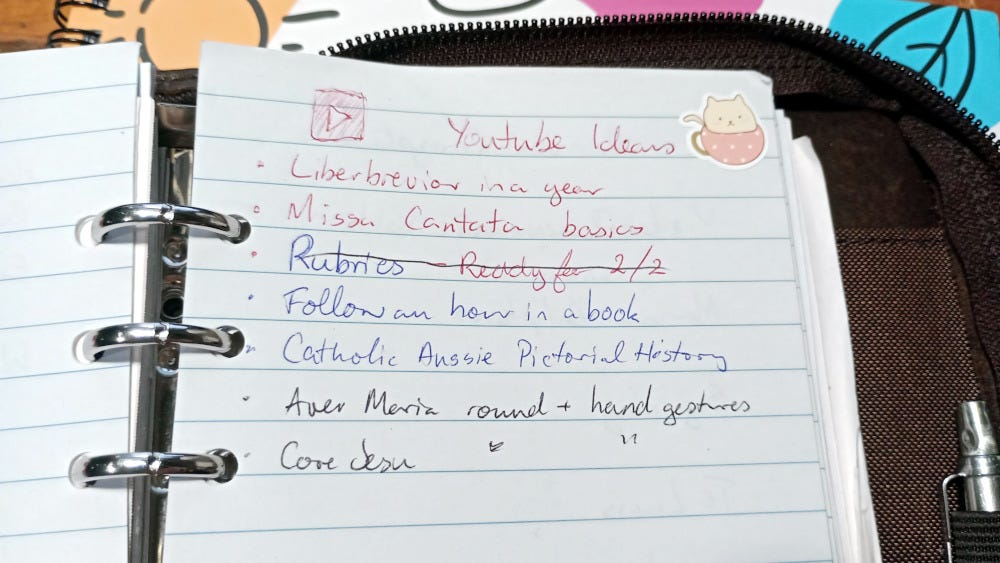 Youtube Ideas
• Liber brevior in a year
• Missa Cantata basics
• Rubrics - Ready for 2/2
• Follow an hour in a book
• Catholic Aussie Pictorial History
• Aver Maria round + hand gestures
• Core Jesu " "